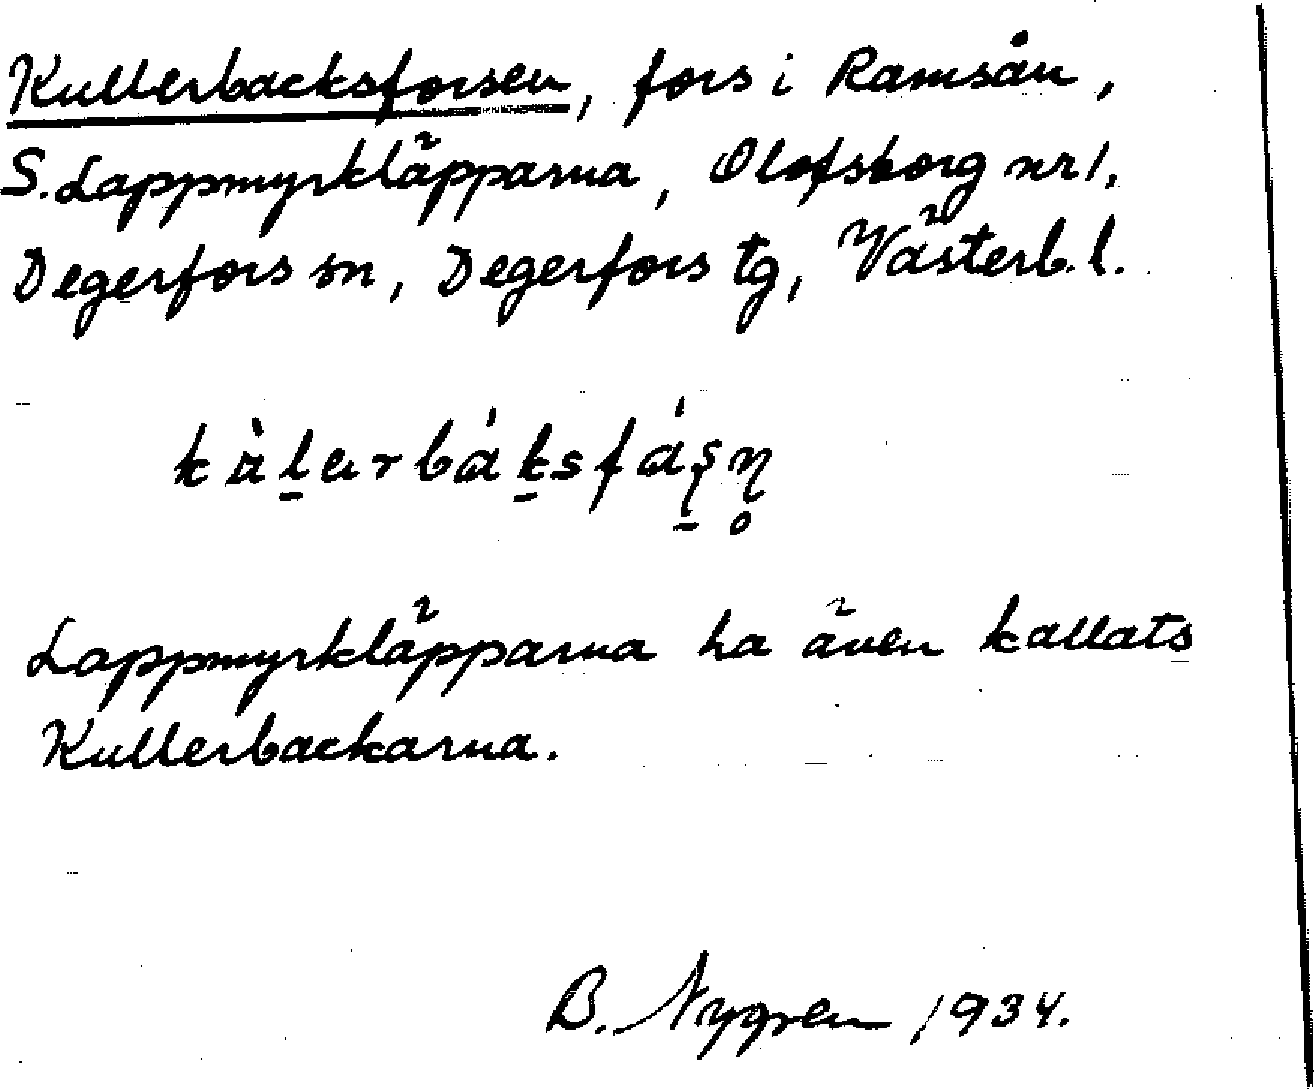 Kullerbacksforsen, fors i Ramsån,
S. Lappmyrkläpparna, Olofsborg nr 1,
Degerfors sn, Degerfors tg, Västerb. l.
Lappmyrkläpparna ha även kallats
Kullerbackarna.
B. Nygren 1934.